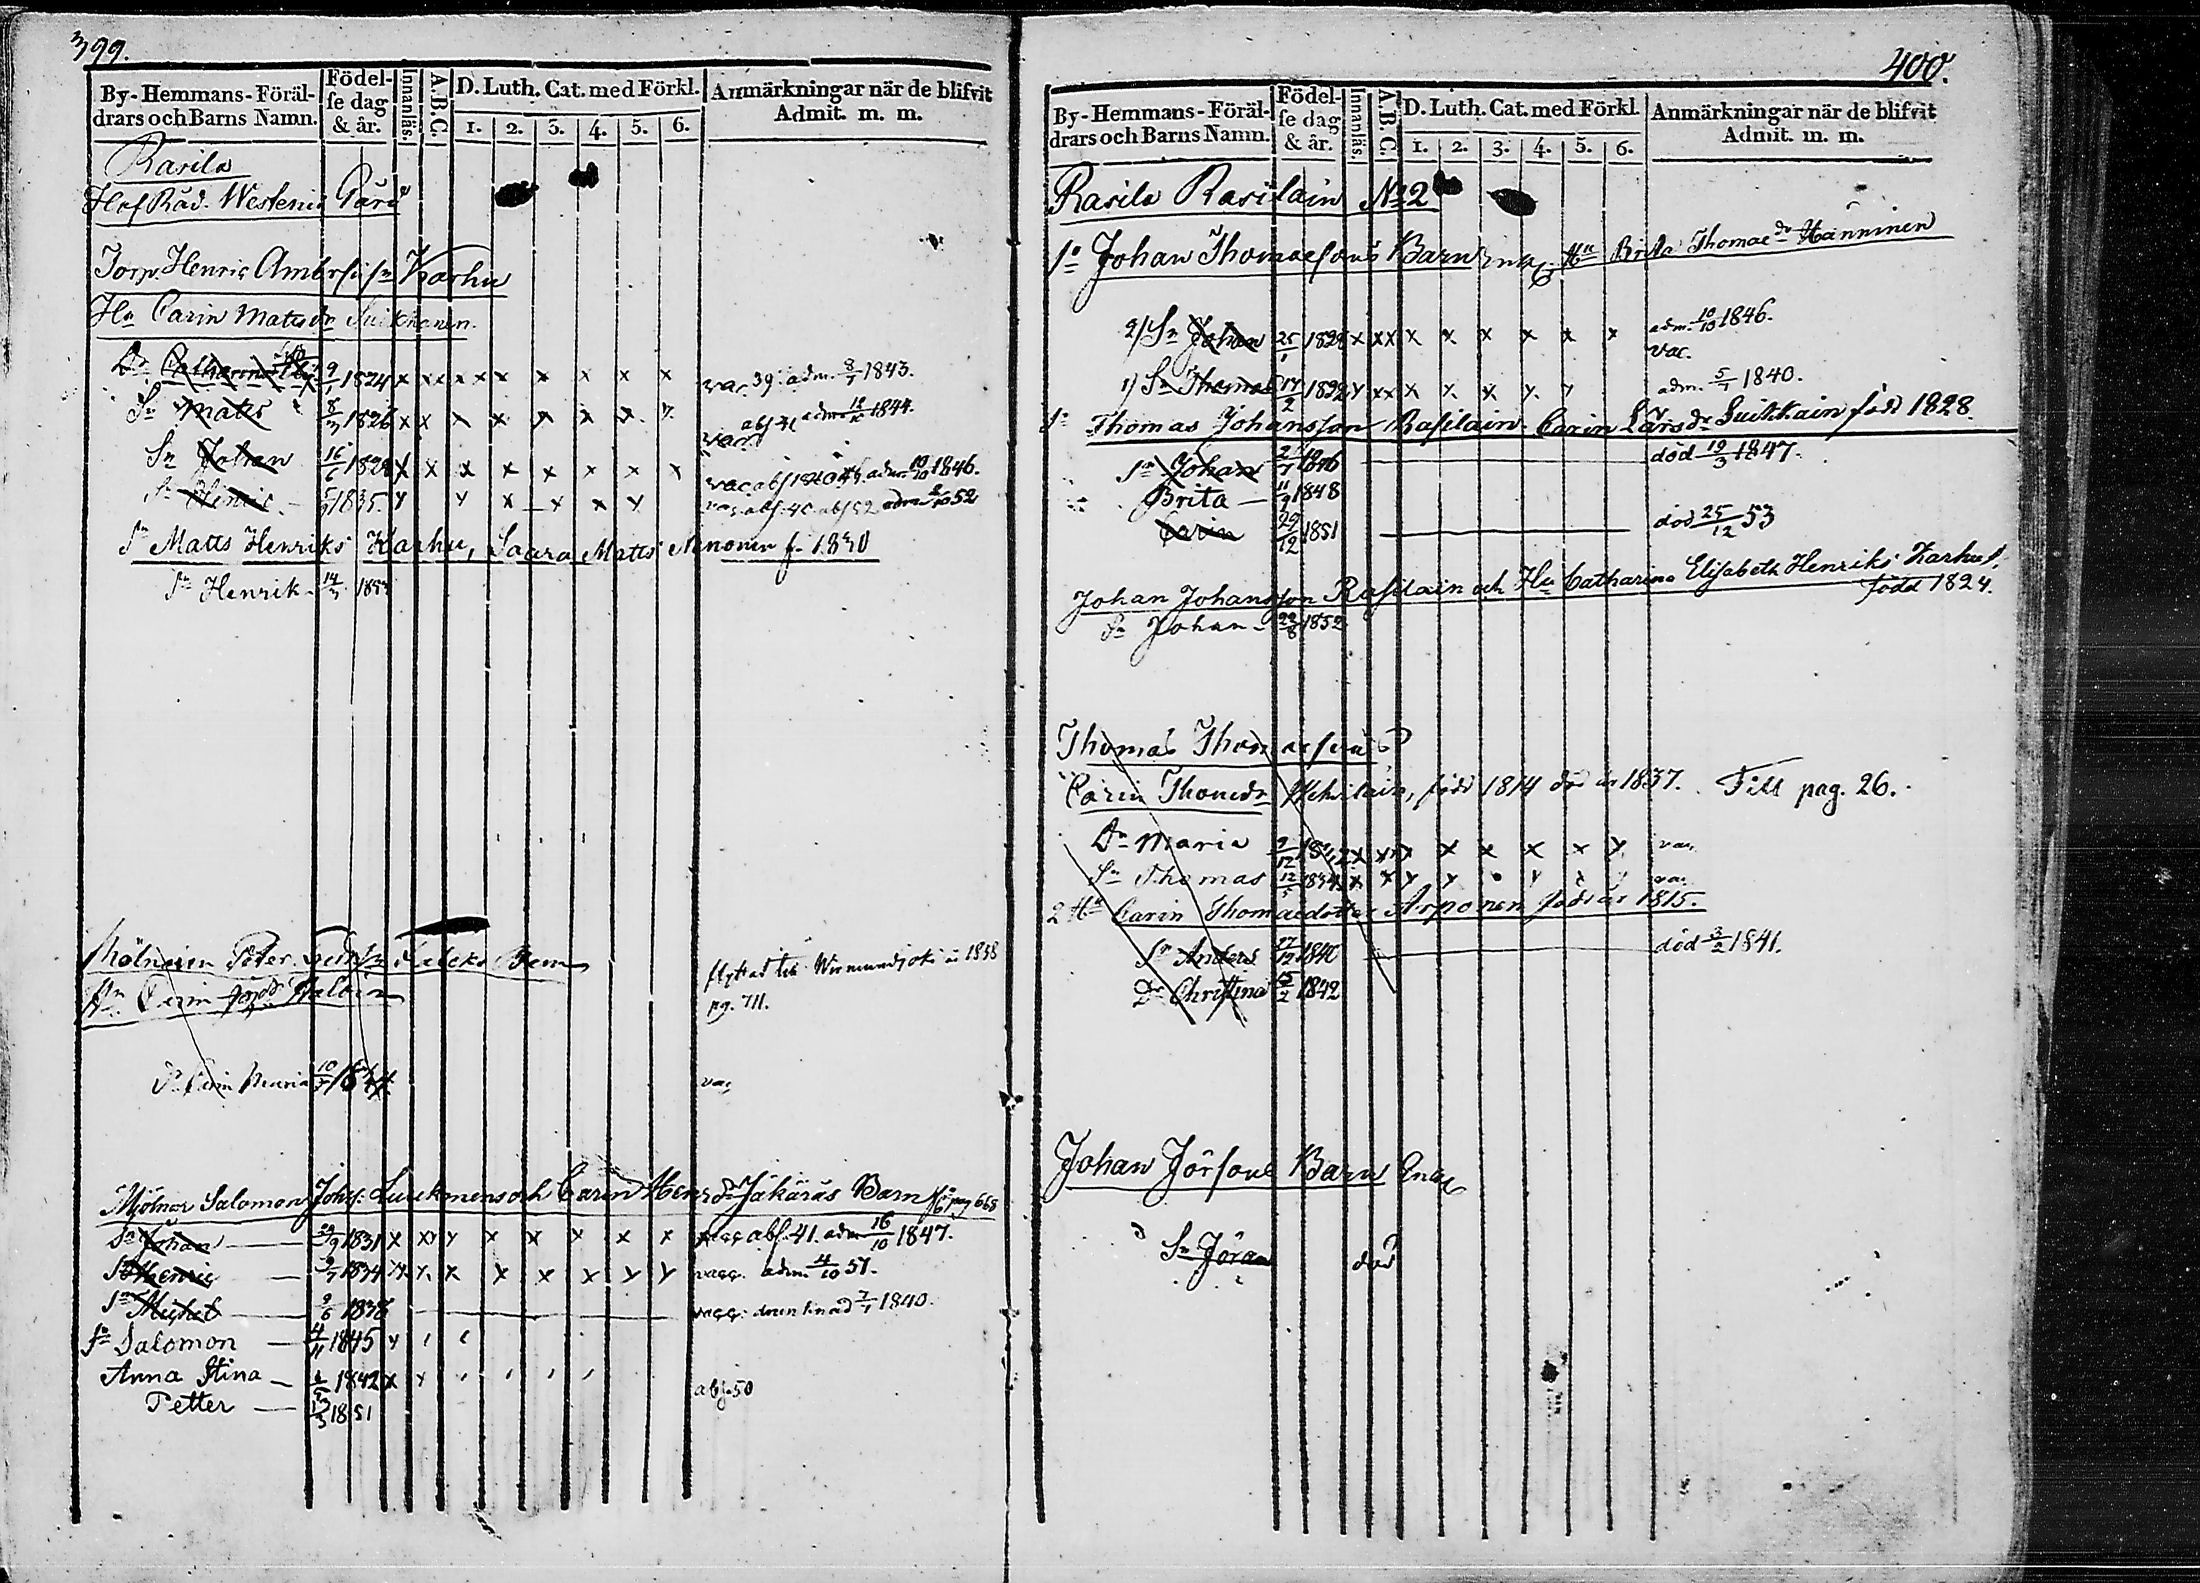 399.
By-Hemmans-Föräldrars och Barns Namn.
Födelse dag & år.
Innanläs.
A.B.C.
D. Luth. Cat. med Förkl.
1. 2. 3. 4. 5. 6.
Anmärkningar när de blifvit Admit. m. m.
Rasila
Hof Råd. Westenii
Torp. Henric Karhu
Hu Carin Mattsdr Suikkanen.
Dr Catharina 9/1 1824 x xx x x x x x x x var 39. adm. 8/7 1843.
Sn Matts 8/3 1826 x x x x x x x x abs 41 adm 1844.
Sn Johan 16/6 1828 x x x x x x x x adm. 10/10 1846.
Sn Henric 1835. 52
Sn Matts Henriks Karhu, Saara Matts f. 1830
Sn Henrik 14/3 1853
Peter
flyttad till Wirmundjoki år 1838
pg. 711.
Carin Maria 1834
var
Mjölnar Salomon Johs: och Carin Henr dr Jäkäräs Barn pag 668
Sn Johan 1831 x xx x x x x x x abs. 41. adm 16/10 1847.
Sn Henric 1834 x x x x x x x vacc. adm. 4/10 51.
Sn Michel 1838 vacc. 7/1 1840.
Sn Salomon 4/11 1845
Anna Stina 1842 x x abs. 50
Petter 13/3 1851
400.
By-Hemmans-Föräldrars och Barns Namn.
Födelse dag & år.
Innanläs.
A.B.C.
D. Luth. Cat. med Förkl.
1. 2. 3. 4. 5. 6.
Anmärkningar när de blifvit Admit. m. m.
Rasila Rasilain No 2
Sn Johan Thomaesons Barn Enka Hu Brita Thomaedr Hänninen
2) Sn Johan 25/1 1828 x xx x x x x x x adm. 10/10 1846.
vac.
1) Sn Thomas 17/2 1822 x xx x x x x x adm. 5/7 1840.
Sn Thomas Johansson Rasilain Carin Larsdr Suikkain född 1828.
Sn Johan 1846 död 19/3 1847.
Brita 11/9 1848
Carin 29/12 1851 död 25/12 53
Johan Johansson Rasilain och Hu Catharina Elisabeth Henriks Karhu
född 1824.
Sn Johan 1852
Thomas Thomaesons
Carin Thomdr född 1814 död år 1837. Till pag. 26.
Dr Maria 9/12 x xxx x x x x x vac.
Sn Thomas 12/5 1834 x x x x x x x vac.
2 Hu Carin Thomaedotter Arponen född år 1815.
Sn Anders 27/12 1840 död 3/2 1841.
Dr Christina 15/2 1842
Johan Jörsons Barn Enka
Sn Jöran död